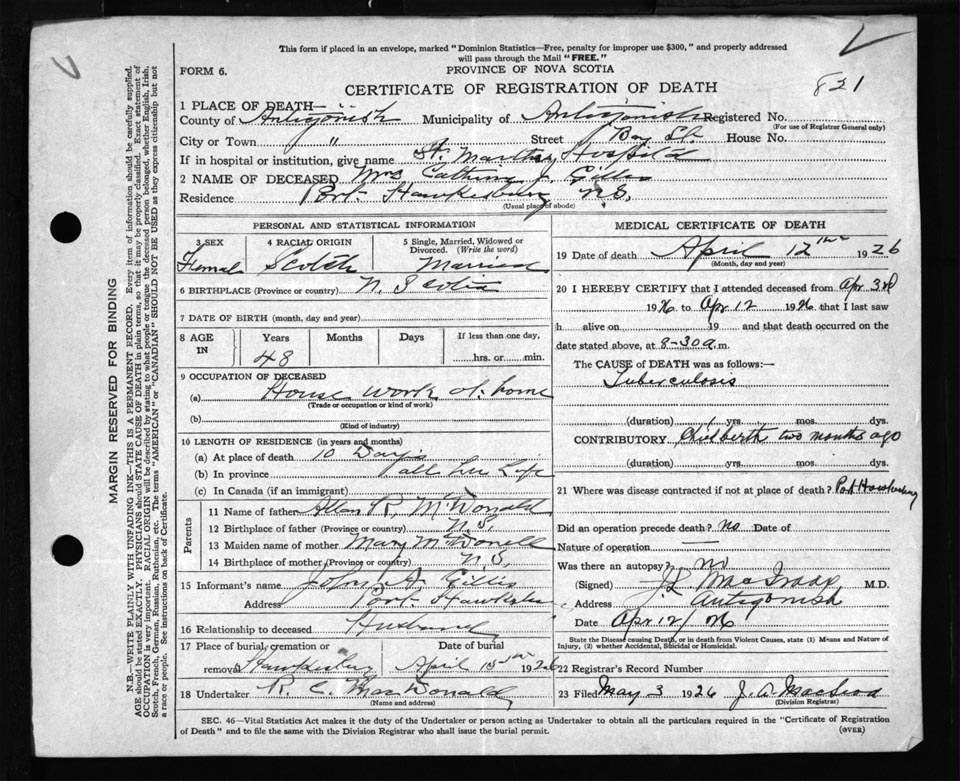 This form if placed in an envelope, marked "Dominion Statistics—Free, penalty for improper use $300," and properly addressed
will pass through the Mail "FREE."
FORM 6.
PROVINCE OF NOVA SCOTIA
CERTIFICATE OF REGISTRATION OF DEATH
821
MARGIN RESERVED FOR BINDING
N.B.—WRITE PLAINLY WITH UNFADING INK—THIS IS A PERMANENT RECORD. Every item of information should be carefully supplied.
AGE should be stated EXACTLY. PHYSICIANS should STATE CAUSE OF DEATH in plain terms, so that it may be properly classified. Exact statement of
OCCUPATION is very important. RACIAL ORIGIN will be described by stating to what people or tongue the deceased person belonged, whether English, Irish,
Scotch, French, German, Russian, Ruthenian, etc. The terms "AMERICAN" or "CANADIAN" SHOULD NOT BE USED as they express citizenship but not
a race or people. See instructions on back of Certificate.
1 PLACE OF DEATH—
County of Antigonish Municipality of Antigonish Registered No.
(For use of Registrar General only)
City or Town " Street Bay St House No.
If in hospital or institution, give name St. Marthas Hospital
2 NAME OF DECEASED Mrs Catherine J. Gillis
Residence Port Hawkesbury N.S.
(Usual place of abode)
PERSONAL AND STATISTICAL INFORMATION
3 SEX 4 RACIAL ORIGIN 5 Single, Married, Widowed or Divorced. (Write the word)
Female Scotch Married
6 BIRTHPLACE (Province or country) N. Scotia
7 DATE OF BIRTH (month, day and year)
8 AGE IN Years Months Days If less than one day,
48 hrs. or min.
9 OCCUPATION OF DECEASED
(a) House work at home
(Trade or occupation or kind of work)
(b)
(Kind of industry)
10 LENGTH OF RESIDENCE (in years and months)
(a) At place of death 10 Days
(b) In province all her Life
(c) In Canada (if an immigrant)
Parents
11 Name of father Allan R. McDonald
12 Birthplace of father (Province or country) N.S.
13 Maiden name of mother Mary McDonell
14 Birthplace of mother (Province or country) N.S.
15 Informant's name John A. Gillis
Address Port Hawksbu
16 Relationship to deceased Husband
17 Place of burial, cremation or Date of burial
removal Hawkesbury April 15th 1926
18 Undertaker R. C. MacDonald
(Name and address)
MEDICAL CERTIFICATE OF DEATH
19 Date of death April 12th 1926
(Month, day and year)
20 I HEREBY CERTIFY that I attended deceased from Apr 3rd
1926 to Apr 12 1926 that I last saw
h alive on 19 and that death occurred on the
date stated above, at 8-30 a.m.
The CAUSE OF DEATH was as follows:—
Tuberculosis
(duration) 1 yrs. mos. dys.
CONTRIBUTORY Childberth two months ago
(duration) yrs. mos. dys.
21 Where was disease contracted if not at place of death? Port Hawkesbury
Did an operation precede death? no Date of
Nature of operation —
Was there an autopsy? no
(Signed) M.D.
Address Antigonish
Date Apr 12/26
State the Disease causing Death, or in death from Violent Causes, state (1) Means and Nature of
Injury, (2) whether Accidental, Suicidal or Homicidal.
22 Registrar's Record Number
23 Filed May 3 1926 J. A. MacLeod
(Division Registrar)
SEC. 46—Vital Statistics Act makes it the duty of the Undertaker or person acting as Undertaker to obtain all the particulars required in the "Certificate of Registration
of Death" and to file the same with the Division Registrar who shall issue the burial permit. (OVER)